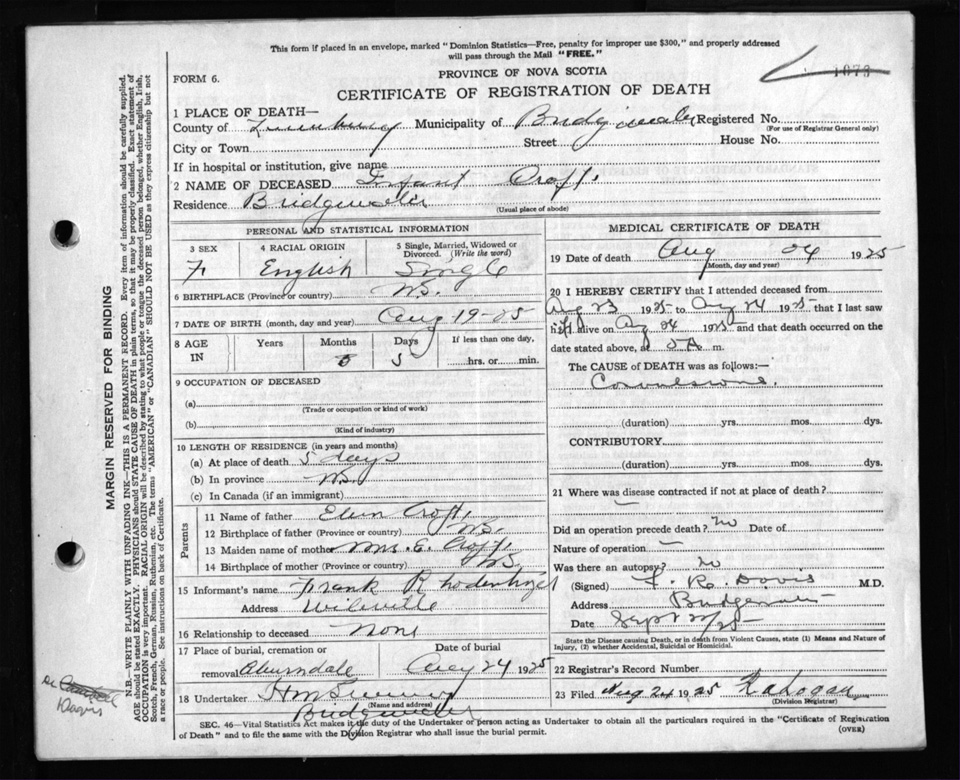 This form if placed in an envelope, marked "Dominion Statistics—Free, penalty for improper use $300," and properly addressed
will pass through the Mail "FREE."
PROVINCE OF NOVA SCOTIA
1873
FORM 6.
CERTIFICATE OF REGISTRATION OF DEATH
1 PLACE OF DEATH—
County of Lunenburg Municipality of Bridgewater Registered No.
(For use of Registrar General only)
City or Town Street House No.
If in hospital or institution, give name
2 NAME OF DECEASED Infant Crofts
Residence Bridgewater
(Usual place of abode)
PERSONAL AND STATISTICAL INFORMATION
3 SEX 4 RACIAL ORIGIN 5 Single, Married, Widowed or Divorced. (Write the word)
F English Single
6 BIRTHPLACE (Province or country) NS.
7 DATE OF BIRTH (month, day and year) Aug 19-25
8 AGE IN Years Months Days If less than one day,
5 hrs. or min.
9 OCCUPATION OF DECEASED
(a)
(Trade or occupation or kind of work)
(b)
(Kind of industry)
10 LENGTH OF RESIDENCE (in years and months)
(a) At place of death 5 days
(b) In province NS.
(c) In Canada (if an immigrant)
Parents
11 Name of father Crofts
12 Birthplace of father (Province or country) NS.
13 Maiden name of mother Mrs. E. Crofts
14 Birthplace of mother (Province or country) NS.
15 Informant's name Frank Rhodenhizer
Address Wileville
16 Relationship to deceased None
17 Place of burial, cremation or removal Date of burial
Aug 24 1925
18 Undertaker
(Name and address)
Bridgewater
MEDICAL CERTIFICATE OF DEATH
19 Date of death Aug 24 1925
(Month, day and year)
20 I HEREBY CERTIFY that I attended deceased from
Aug 23 1925 to Aug 24 1925 that I last saw
h alive on Aug 24 1925 and that death occurred on the
date stated above, at A m.
The CAUSE OF DEATH was as follows:—
Convulsions.
(duration) yrs. mos. dys.
CONTRIBUTORY
(duration) yrs. mos. dys.
21 Where was disease contracted if not at place of death?
Did an operation precede death? no Date of
Nature of operation —
Was there an autopsy? no
(Signed) Davis M.D.
Address Bridgewater
Date Sept
State the Disease causing Death, or in death from Violent Causes, state (1) Means and Nature of
Injury, (2) whether Accidental, Suicidal or Homicidal.
22 Registrar's Record Number
23 Filed Aug 24 1925
(Division Registrar)
SEC. 46—Vital Statistics Act makes it the duty of the Undertaker or person acting as Undertaker to obtain all the particulars required in the "Certificate of Registration
of Death" and to file the same with the Division Registrar who shall issue the burial permit.
(OVER)
MARGIN RESERVED FOR BINDING
N.B.—WRITE PLAINLY WITH UNFADING INK—THIS IS A PERMANENT RECORD. Every item of information should be carefully supplied.
AGE should be stated EXACTLY. PHYSICIANS should STATE CAUSE OF DEATH in plain terms, so that it may be properly classified. Exact statement of
OCCUPATION is very important. RACIAL ORIGIN will be described by stating to what people or tongue the deceased person belonged, whether English, Irish,
Scotch, French, German, Russian, Ruthenian, etc. The terms "AMERICAN" or "CANADIAN" SHOULD NOT BE USED as they express citizenship but not
a race or people. See instructions on back of Certificate.
Dr
Davis